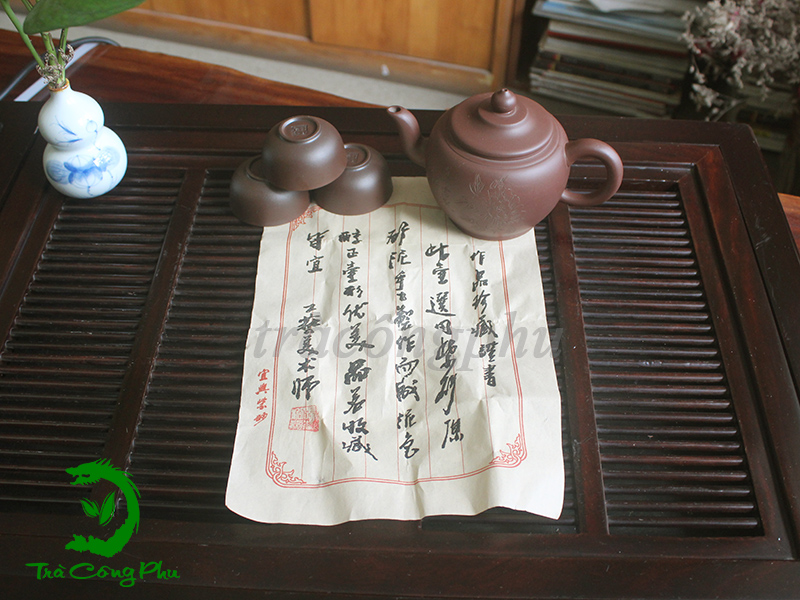 作品珍藏證書
此壺選用紫砂原
砂泥手工製作而成泥色
純正壺形优美品茗收藏
皆宜
工藝美术师
宜興紫砂
tràcôngphu
Trà Công Phu